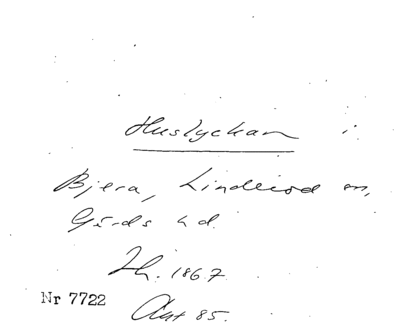 Huslyckan i
Bjera, Linderöd sn,
Gärds hd.
Th. 1867
Nr 7722
Akt 85.